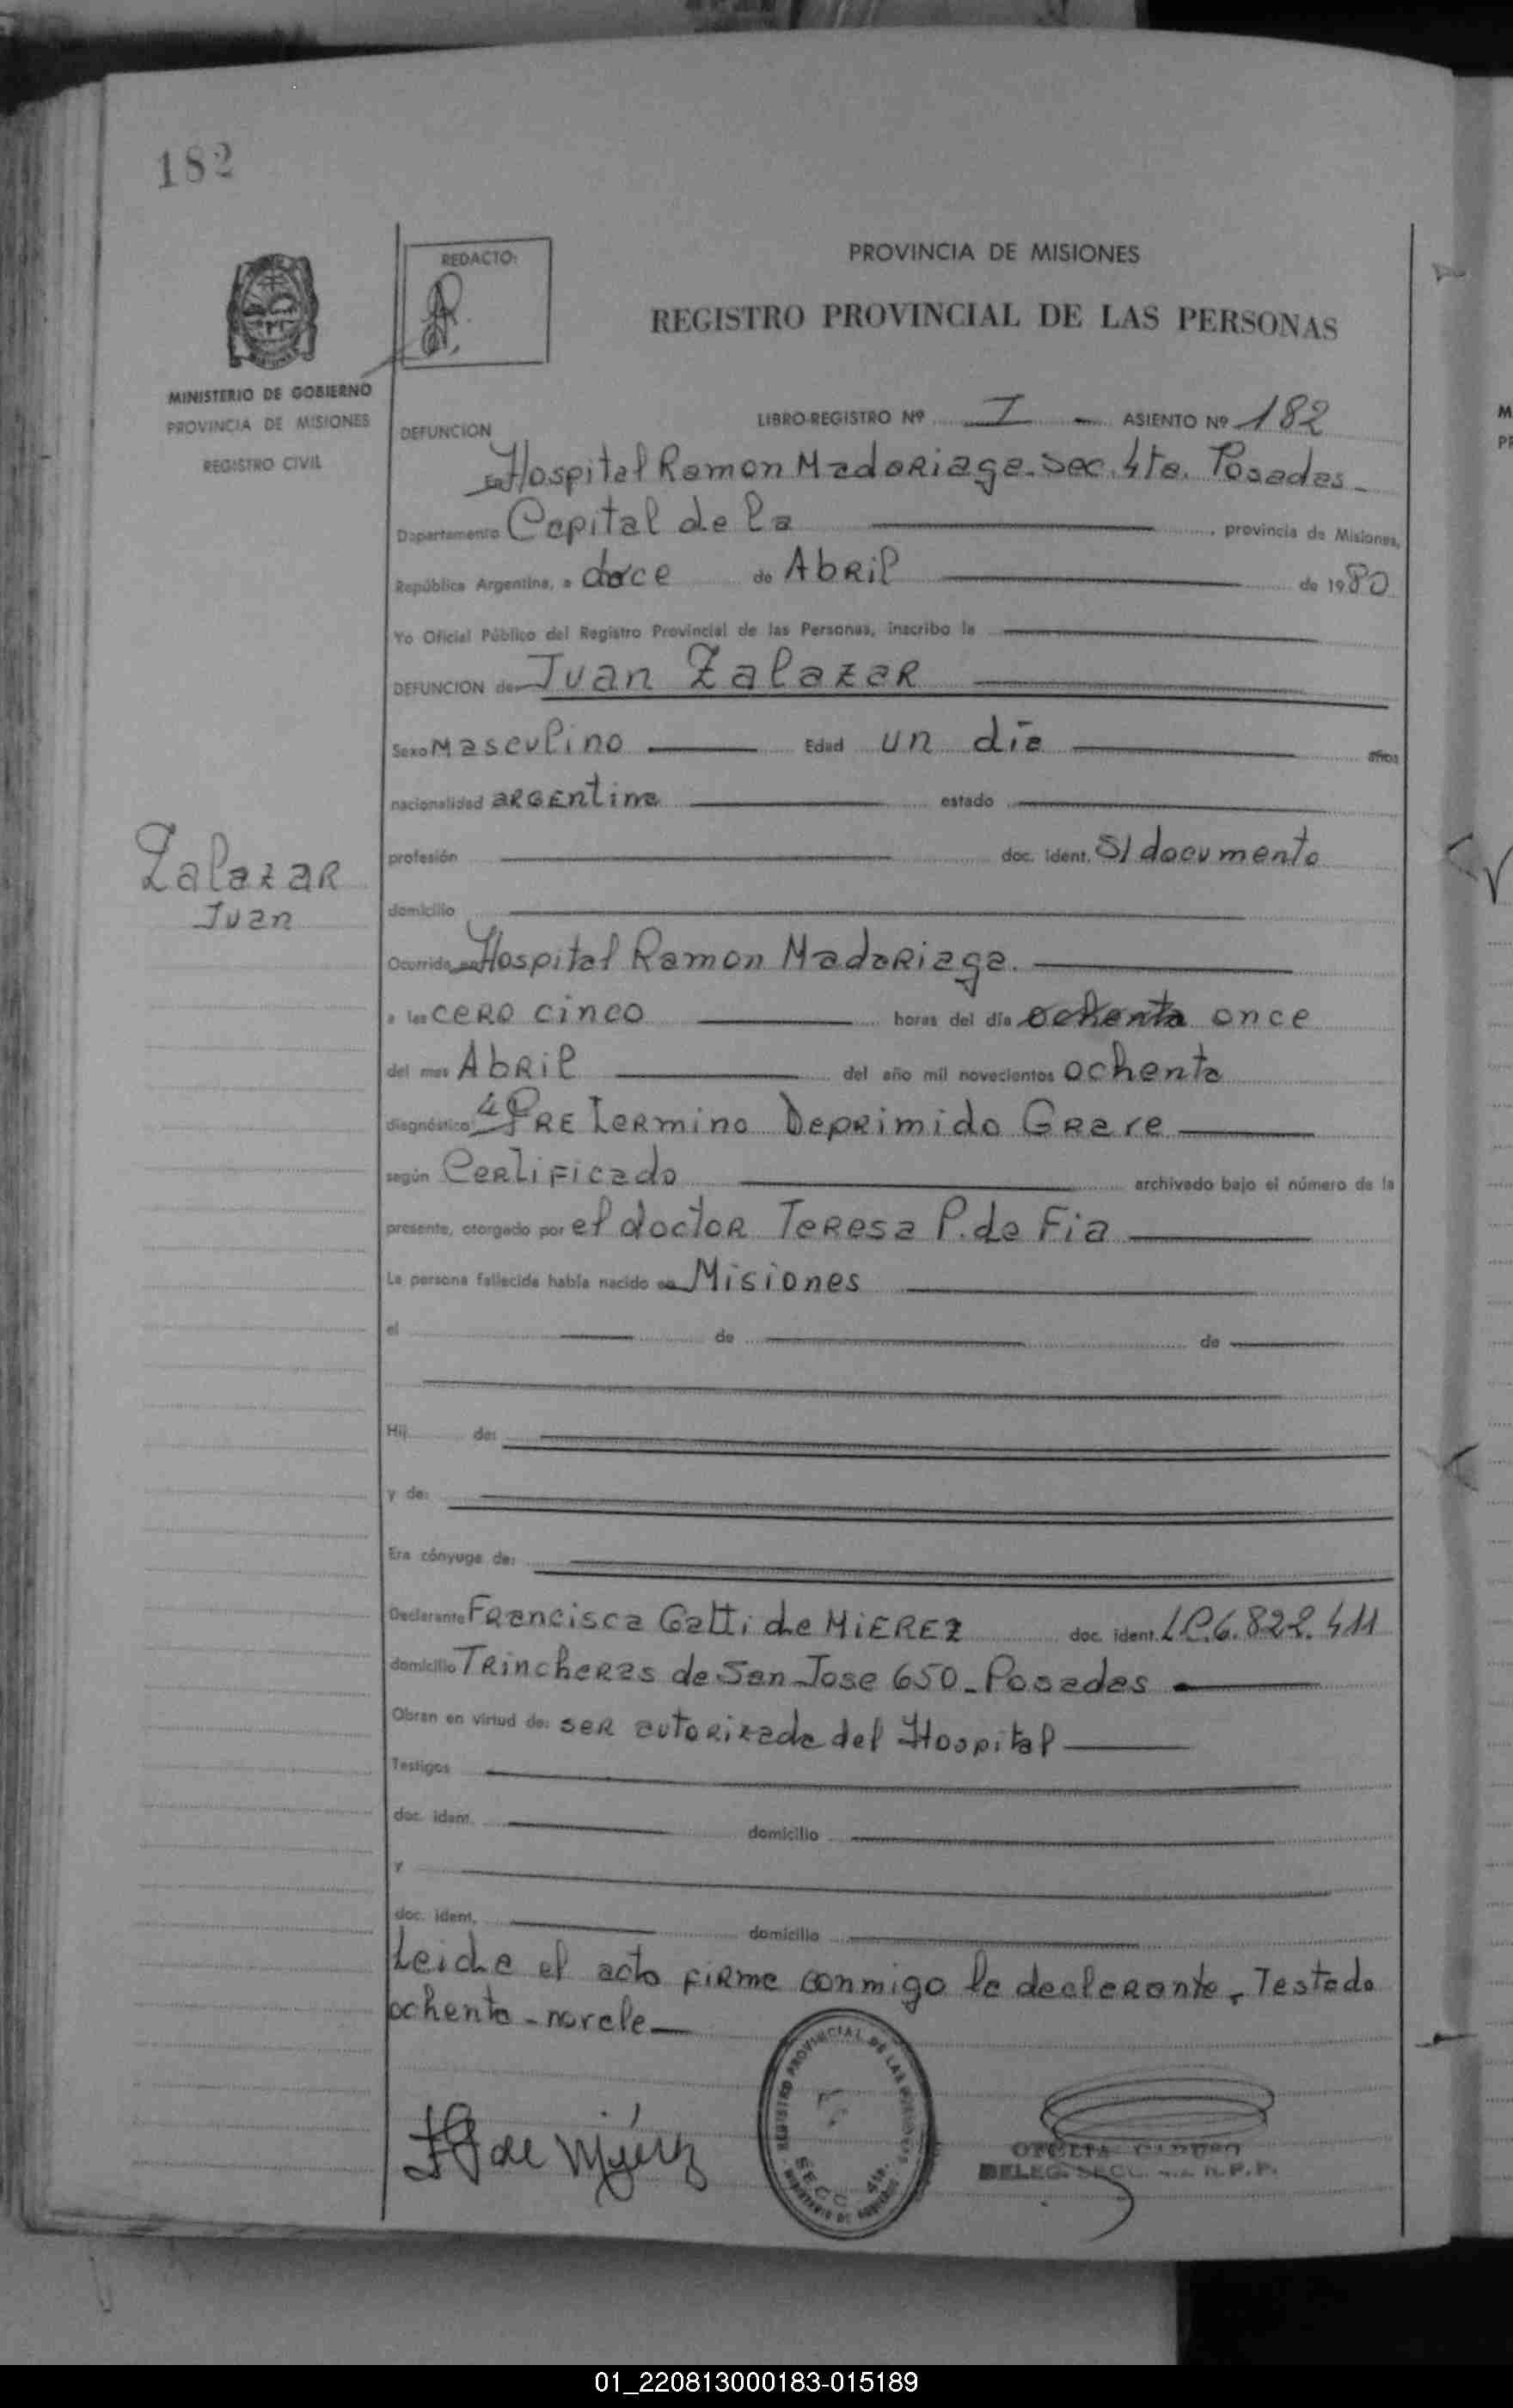 182
REDACTO:
PROVINCIA DE MISIONES
REGISTRO PROVINCIAL DE LAS PERSONAS
MINISTERIO DE GOBIERNO
PROVINCIA DE MISIONES
REGISTRO CIVIL
DEFUNCION
LIBRO-REGISTRO Nº I - ASIENTO Nº 182
En Hospital Ramon Madariaga. Sec. 4ta. Posadas-
Departamento Capital de la , provincia de Misiones,
República Argentina, a doce de Abril de 1980
Yo Oficial Público del Registro Provincial de las Personas, inscribo la
DEFUNCION de Juan Zalazar
Sexo Masculino Edad un día años
nacionalidad argentina estado
profesión doc. ident. S/ documento
Zalazar
Juan
domicilio
Ocurrido en Hospital Ramon Madariaga.
a las cero cinco horas del día ochenta once
del mes Abril del año mil novecientos ochenta
diagnóstico Pretermino Deprimido Grave
según Certificado archivado bajo el número de la
presente, otorgado por el doctor Teresa P. de Fia
La persona fallecida había nacido en Misiones
el de de
Hij de:
y de:
Era cónyuge de:
Declarante Francisca Gatti de MIEREZ doc. ident. LC. 6.822.411
domicilio Trincheras de San Jose 650- Posadas
Obran en virtud de: ser autorizada del Hospital
Testigos
doc. ident. domicilio
y
doc. ident. domicilio
Leida el acta firma conmigo la declarante. Testado
ochenta - no vale
REGISTRO PROVINCIAL DE LAS PERSONAS
SECC. 4ta.
MINISTERIO DE GOBIERNO
DELEG. SECC. R.P.P.
01_220813000183-015189